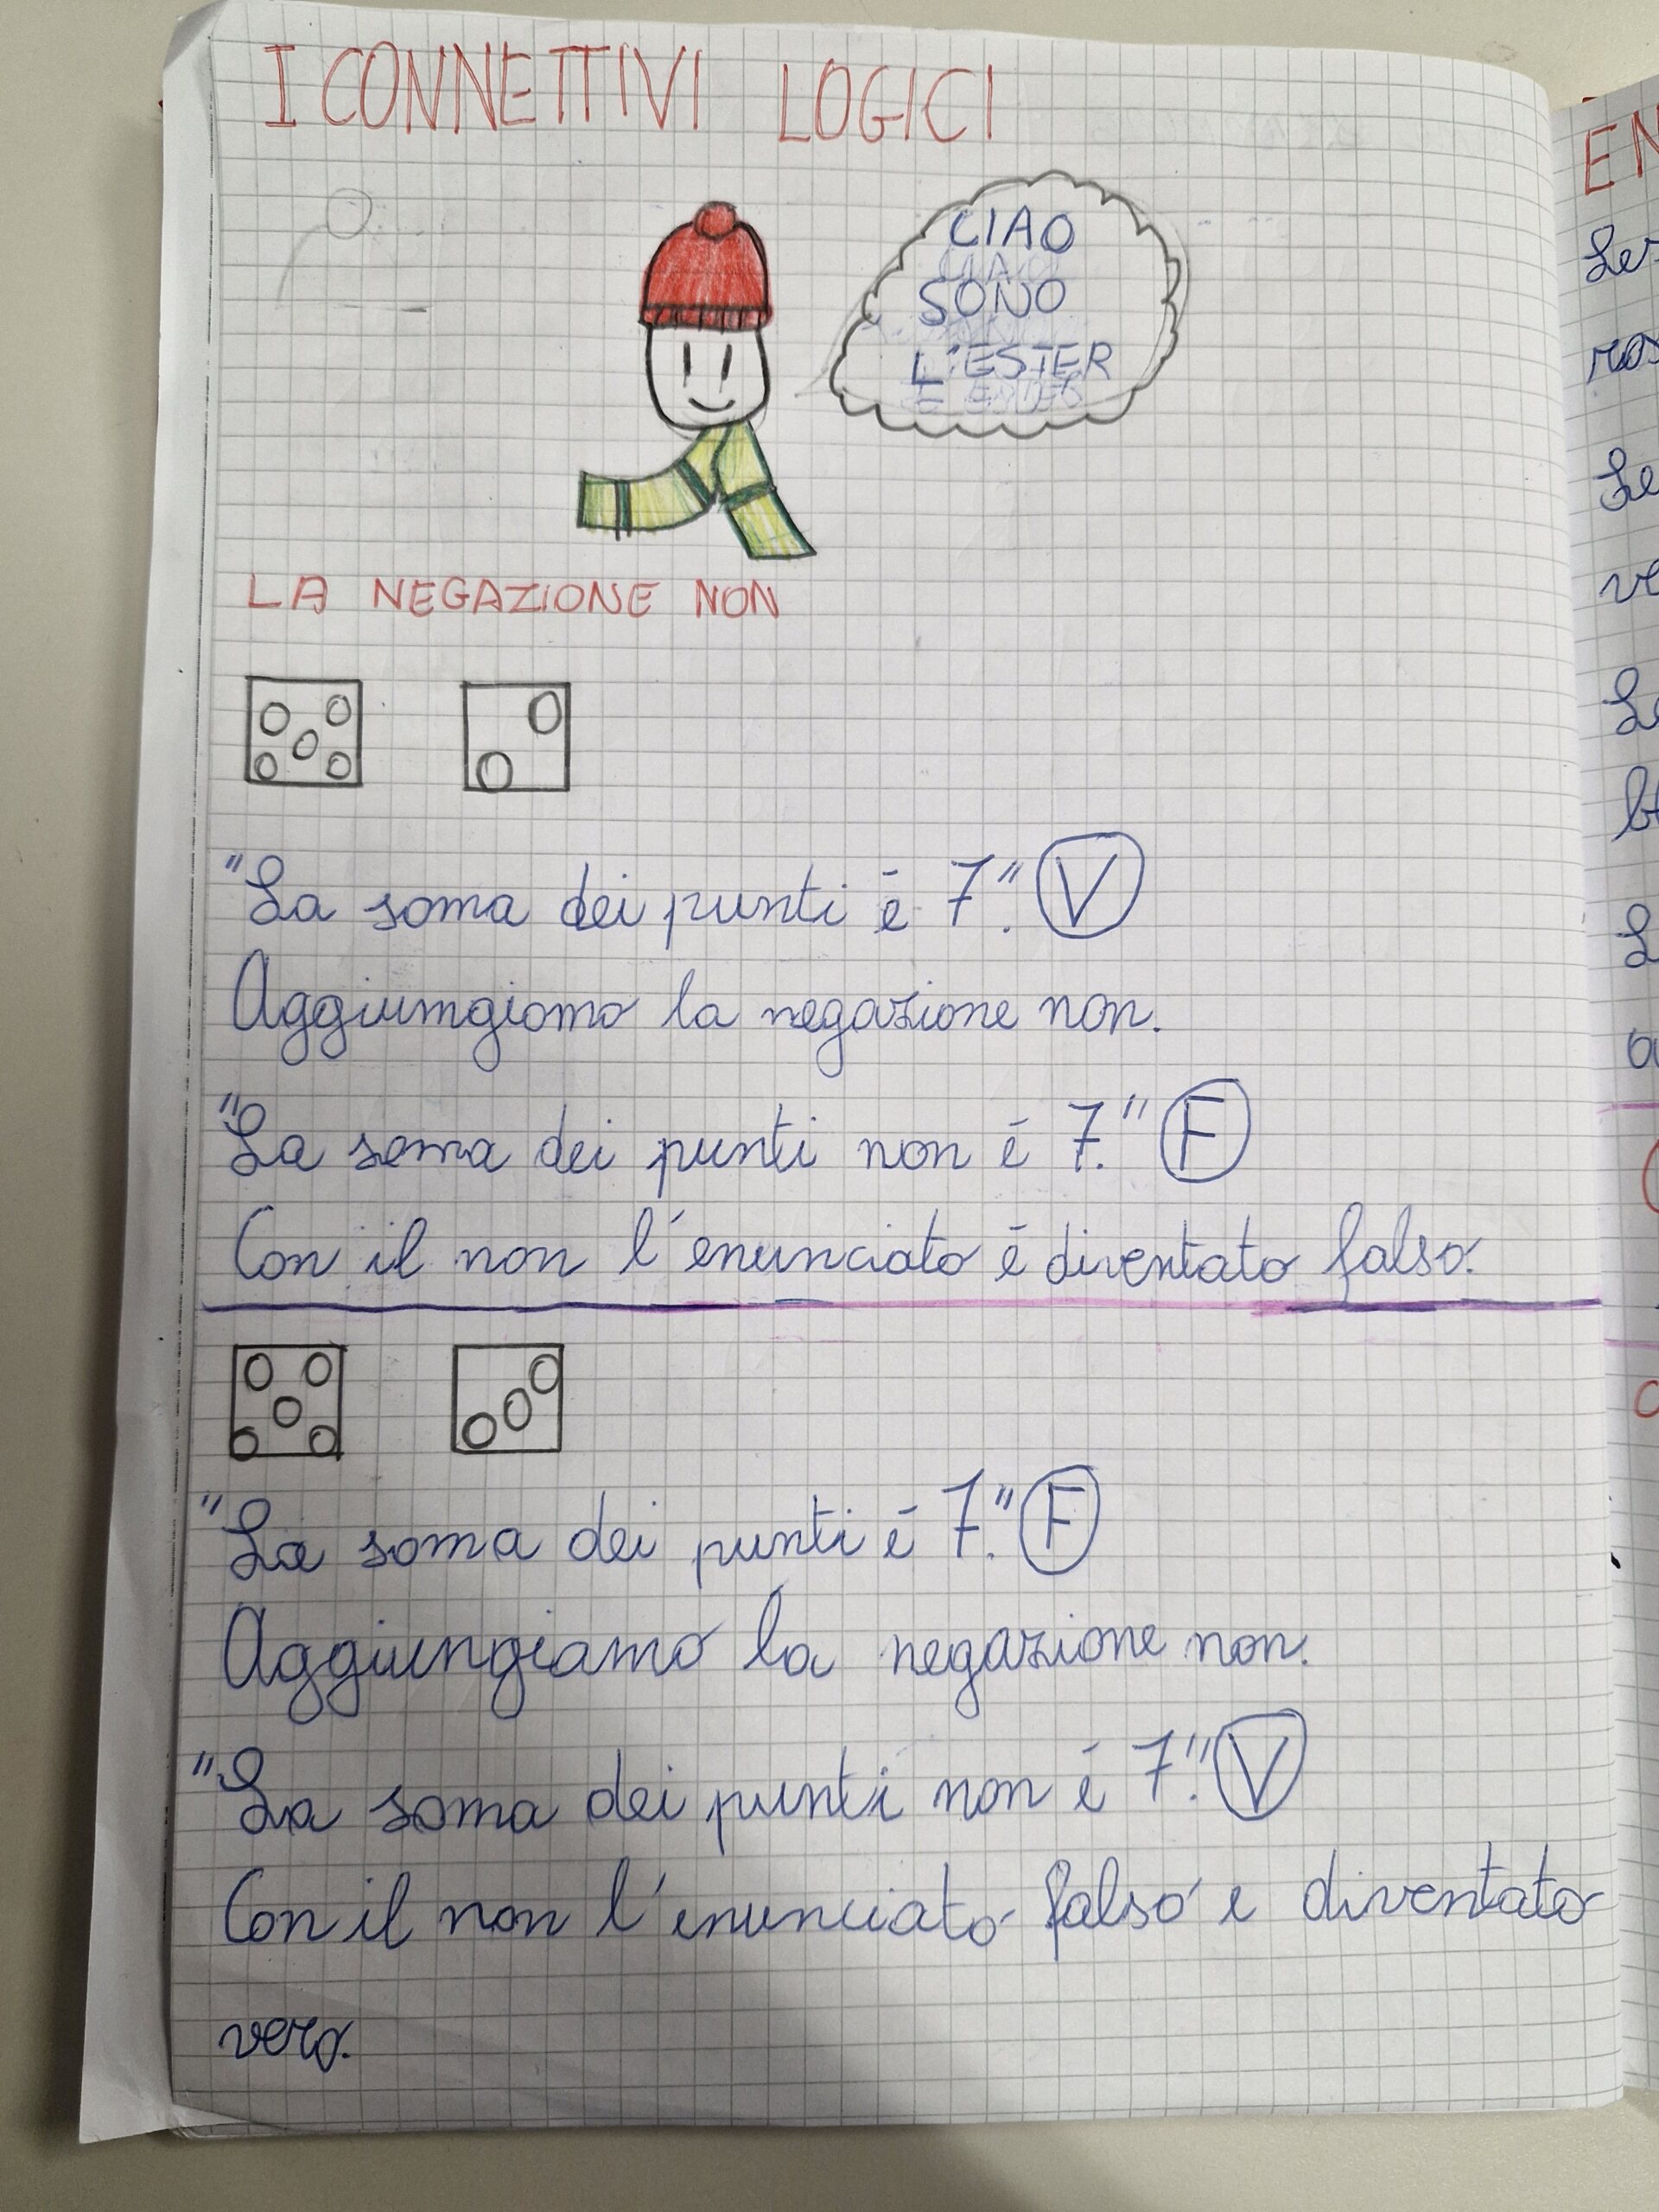 I CONNETTIVI LOGICI
CIAO
SONO
L'ESTER
LA NEGAZIONE NON
"La soma dei punti è 7." V
Aggiumgiomo la negazione non.
"La soma dei punti non è 7." F
Con il non l'enunciato è diventato falso.
"La soma dei punti è 7." F
Aggiungiamo la negazione non.
"La soma dei punti non è 7." V
Con il non l'enunciato falso è diventato
vero.